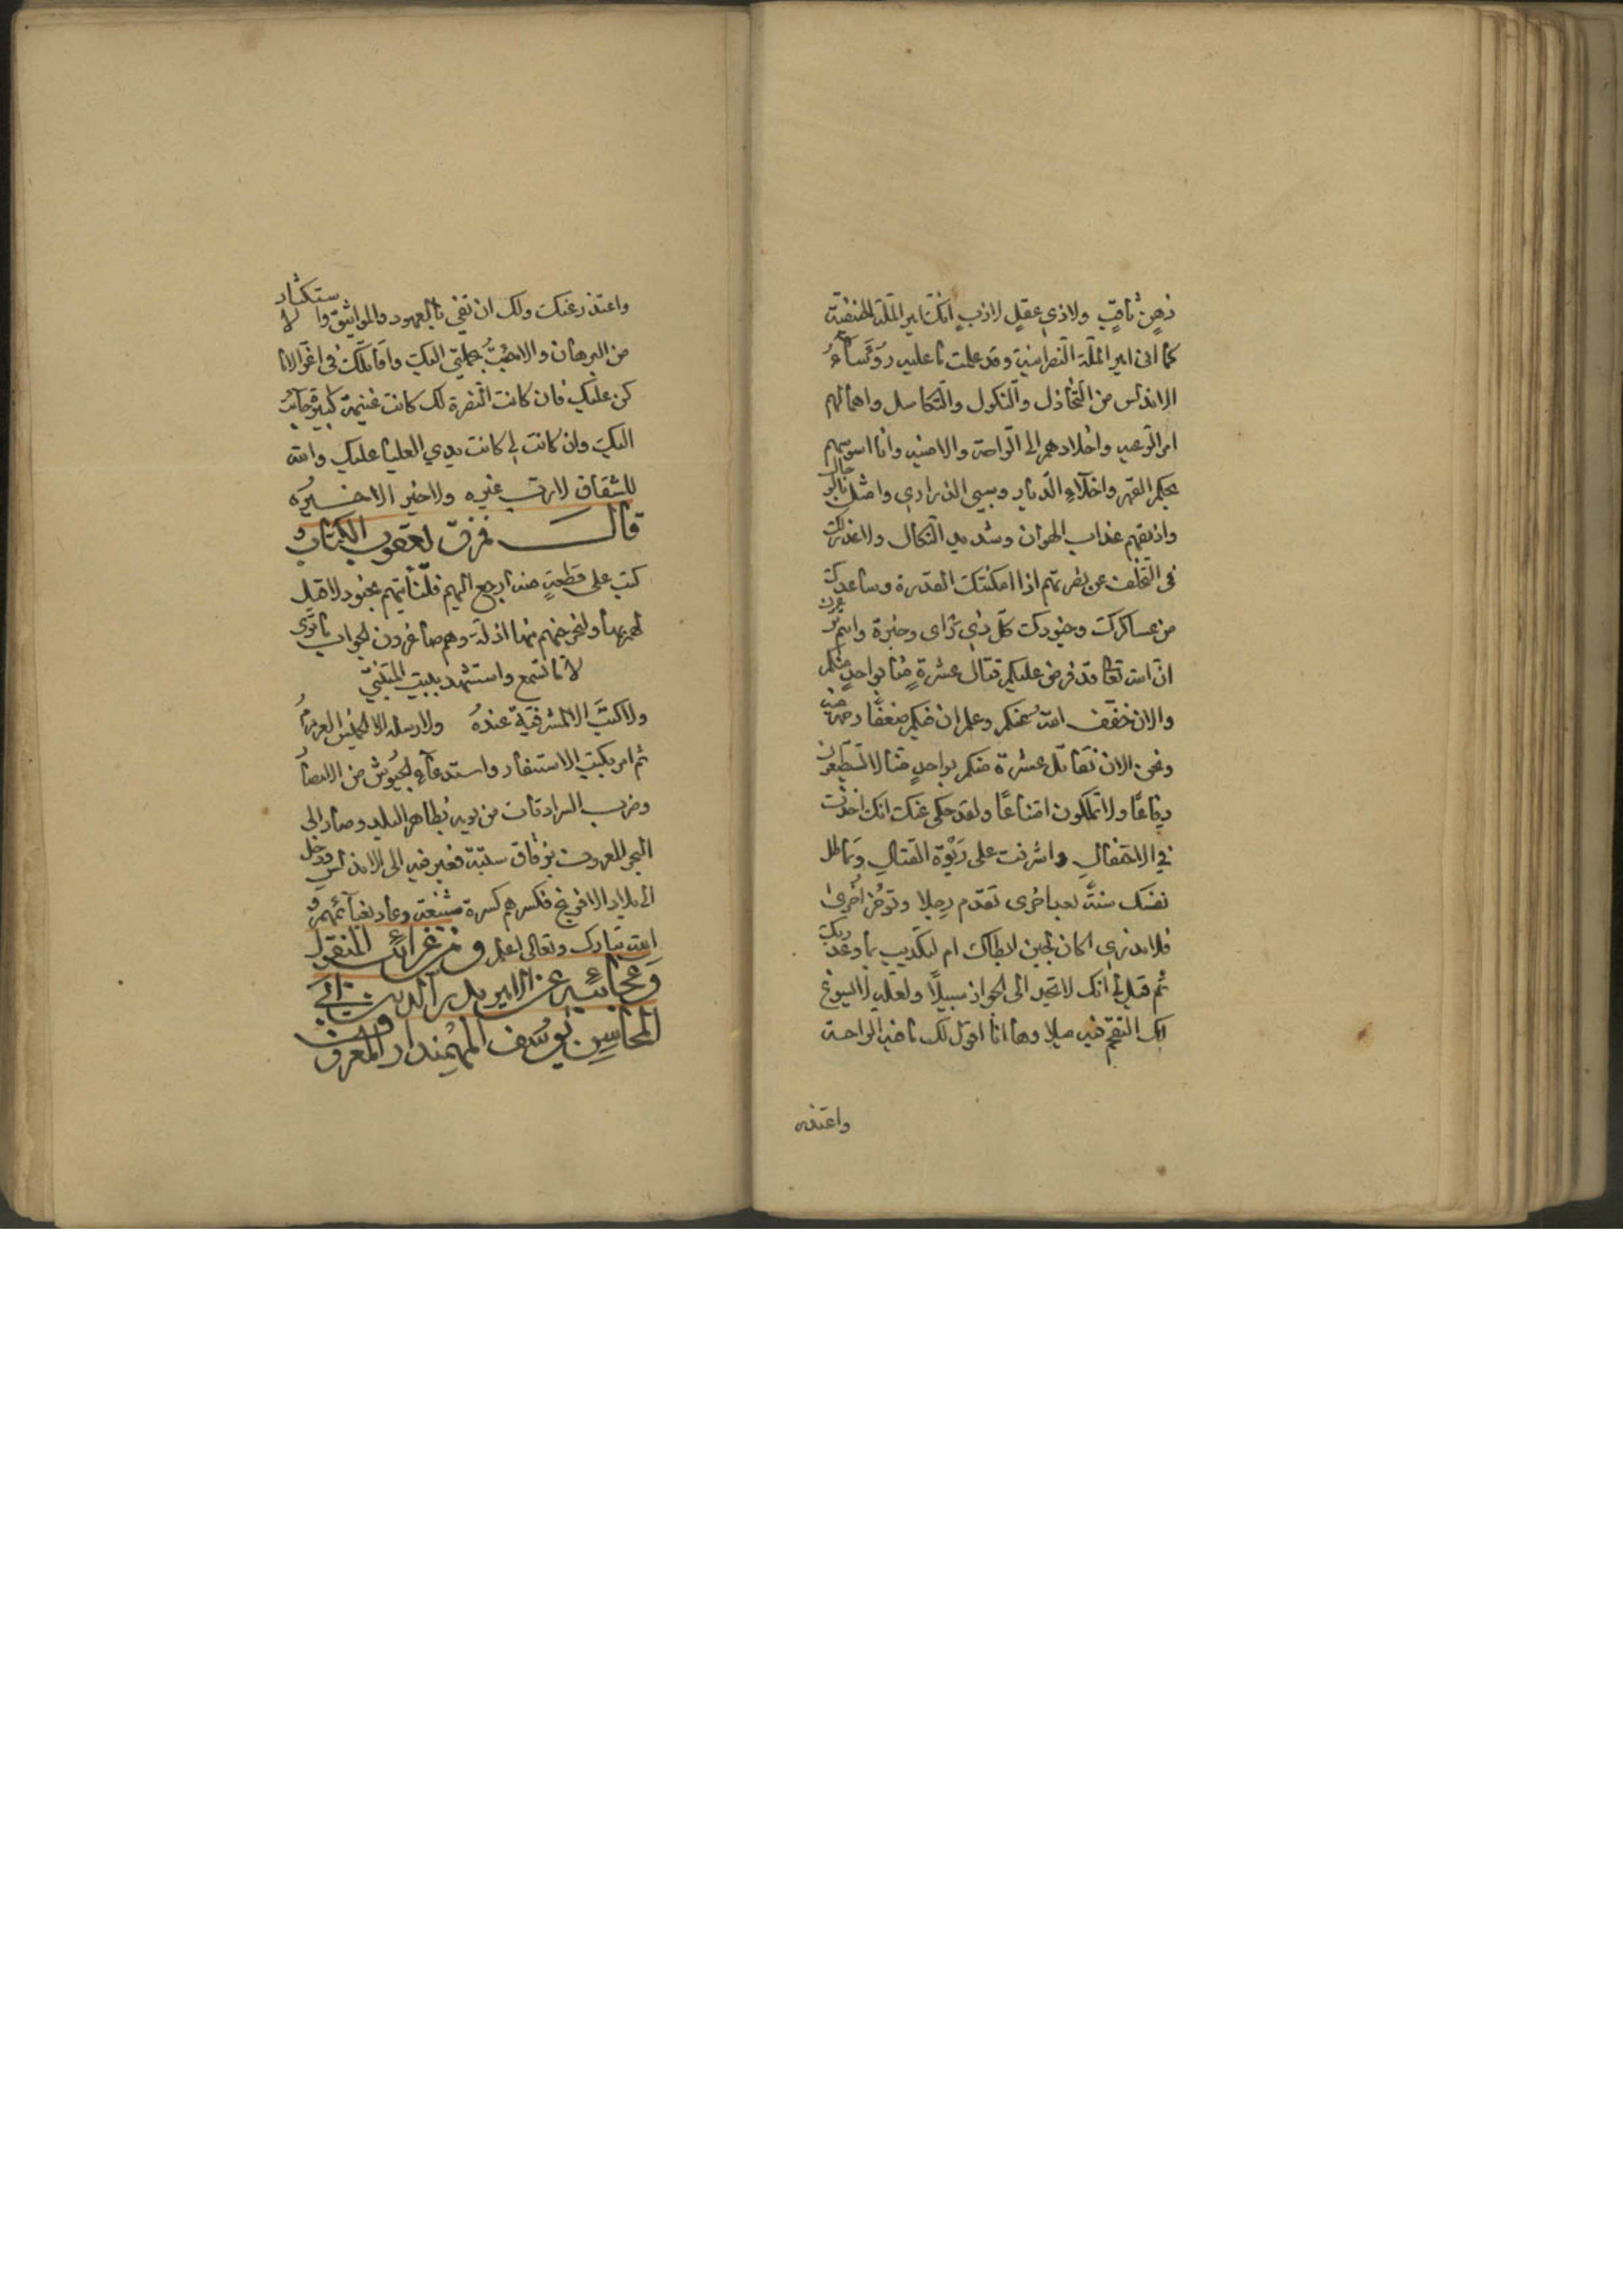 ذهن ثاقب ولا ذي عقل لازب انك امير الملة الحنيفية
كما انى امير الملة النصرانية وقد علمت ما عليه رؤساء
الاندلس من التخاذل والنكول والتكاسل واهمالهم
امر الرعية واخلادهم الى الراحة والامنية وانا اسومهم
بحكم القهر واخلآء الديار وسبى الذرارى وامثل بالرجال
واذيقهم عذاب الهوان وشديد النكال ولا عذر لك
فى التخلف عن نصرتهم اذا امكنتك القدرة وساعدك
من عساكرك وجنودك كل ذي راى وخبرة وانتم تزعمون
ان الله تعا قد فرض عليكم قتال عشرة منا بواحد منكم
والان خفف الله عنكم وعلم ان فيكم ضعفا رحمة منه
ونحن الان نقاتل عشرة منكم بواحد منا لا تستطيعون
دفاعا ولا تملكون امتناعا ولقد حكى عنك انك اخذت
في الاحتفال واشرفت على ربوة القتال وتماطل
نفسك سنة بعد اخرى تقدم رجلا وتؤخر اخرى
فلا ندرى اكان الجبن ابطاك ام التكذيب بما وعد ربك
ثم قيل لي انك لا تجد الى الجواز سبيلا ولعله لا يسوغ
لك التقحم فيه ميلا وها انا اقول لك ما فيه الراحة
واعتذر
واعتذر عنك ولك ان تفى بالعهود والمواثيق والاستكثار
من البرهان والا جئت بجملتي اليك واقاتلك في اعز الاما
كن عليك فان كانت النصرة لك كانت غنيمة كبيرة جآءت
اليك وان كانت لي كانت يدي العليا عليك والله
لا رب غيره ولا خير الا خيره
قال فمزق يعقوب الكتاب و
كتب على قطعة منه ارجع اليهم فلنأتينهم بجنود لا قبل
لهم بها ولنخرجنهم منها اذلة وهم صاغرون الجواب ما ترى
لا ما تسمع واستشهد ببيت المتنبي
ولا كتب الا المشرفية عنده ولا رسله الا الخميس العرمرم
ثم امر بكتب الاستنفار واستدعآء الجيوش من الامصار
وضرب السرادقات من يومه بظاهر البلد وصار الى
البحر المعروف بزقاق سبتة فعبر فيه الى الاندلس ودخل
الى بلاد الافرنج فكسرهم كسرة شنيعة وعاد بغنآئمهم و
الله تبارك وتعالى اعلم ومن غرائب المنقول
وعجائبه عن الامير بدر الدين ابي
المحاسن يوسف المهمندار المعروف